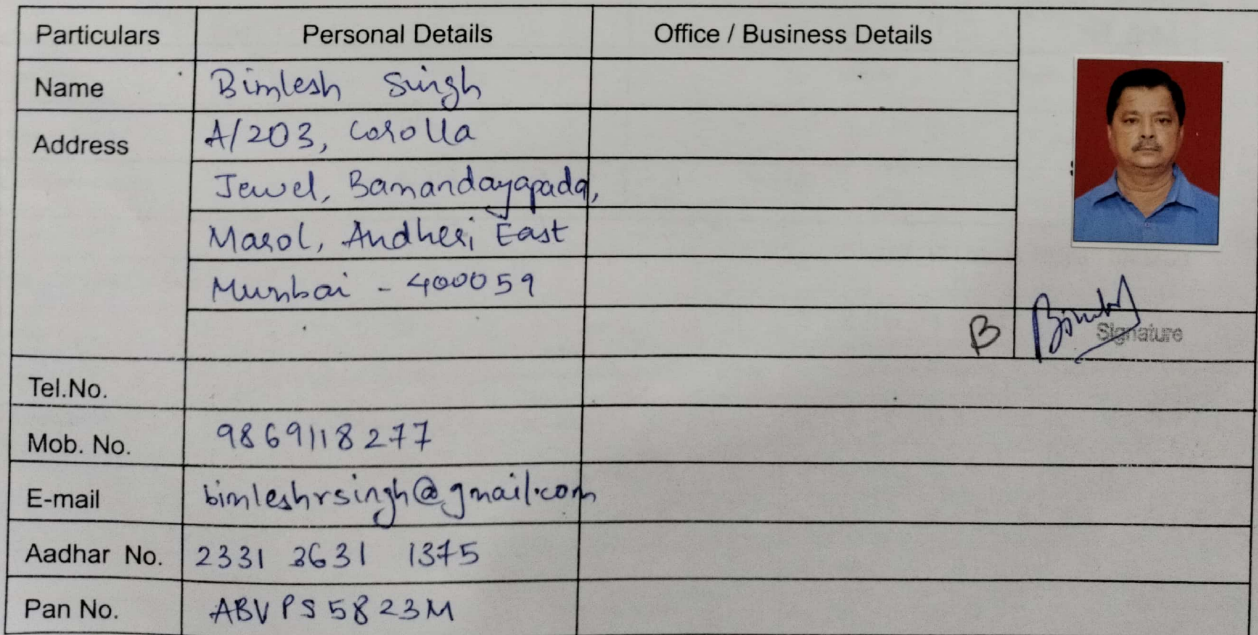 Particulars Personal Details Office / Business Details
Name Bimlesh Singh
Address A/203, Corolla
Jewel, Bamandayapada,
Marol, Andheri East
Mumbai - 400059
B Signature
Tel.No.
Mob. No. 9869118277
E-mail bimleshrsingh@gmail.com
Aadhar No. 2331 3631 1375
Pan No. ABVPS5823M